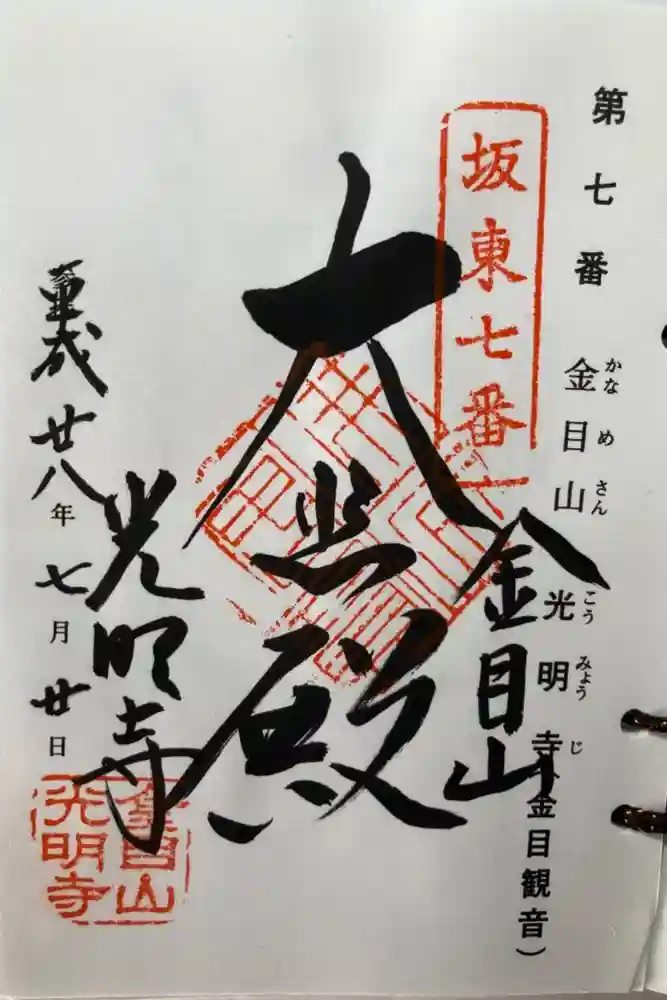 第七番 金目山 光明寺(金目観音)
かなめさん
こうみょうじ
坂東七番
金目山
大悲殿
光明寺
平成廿八年七月廿日
金目山
光明寺